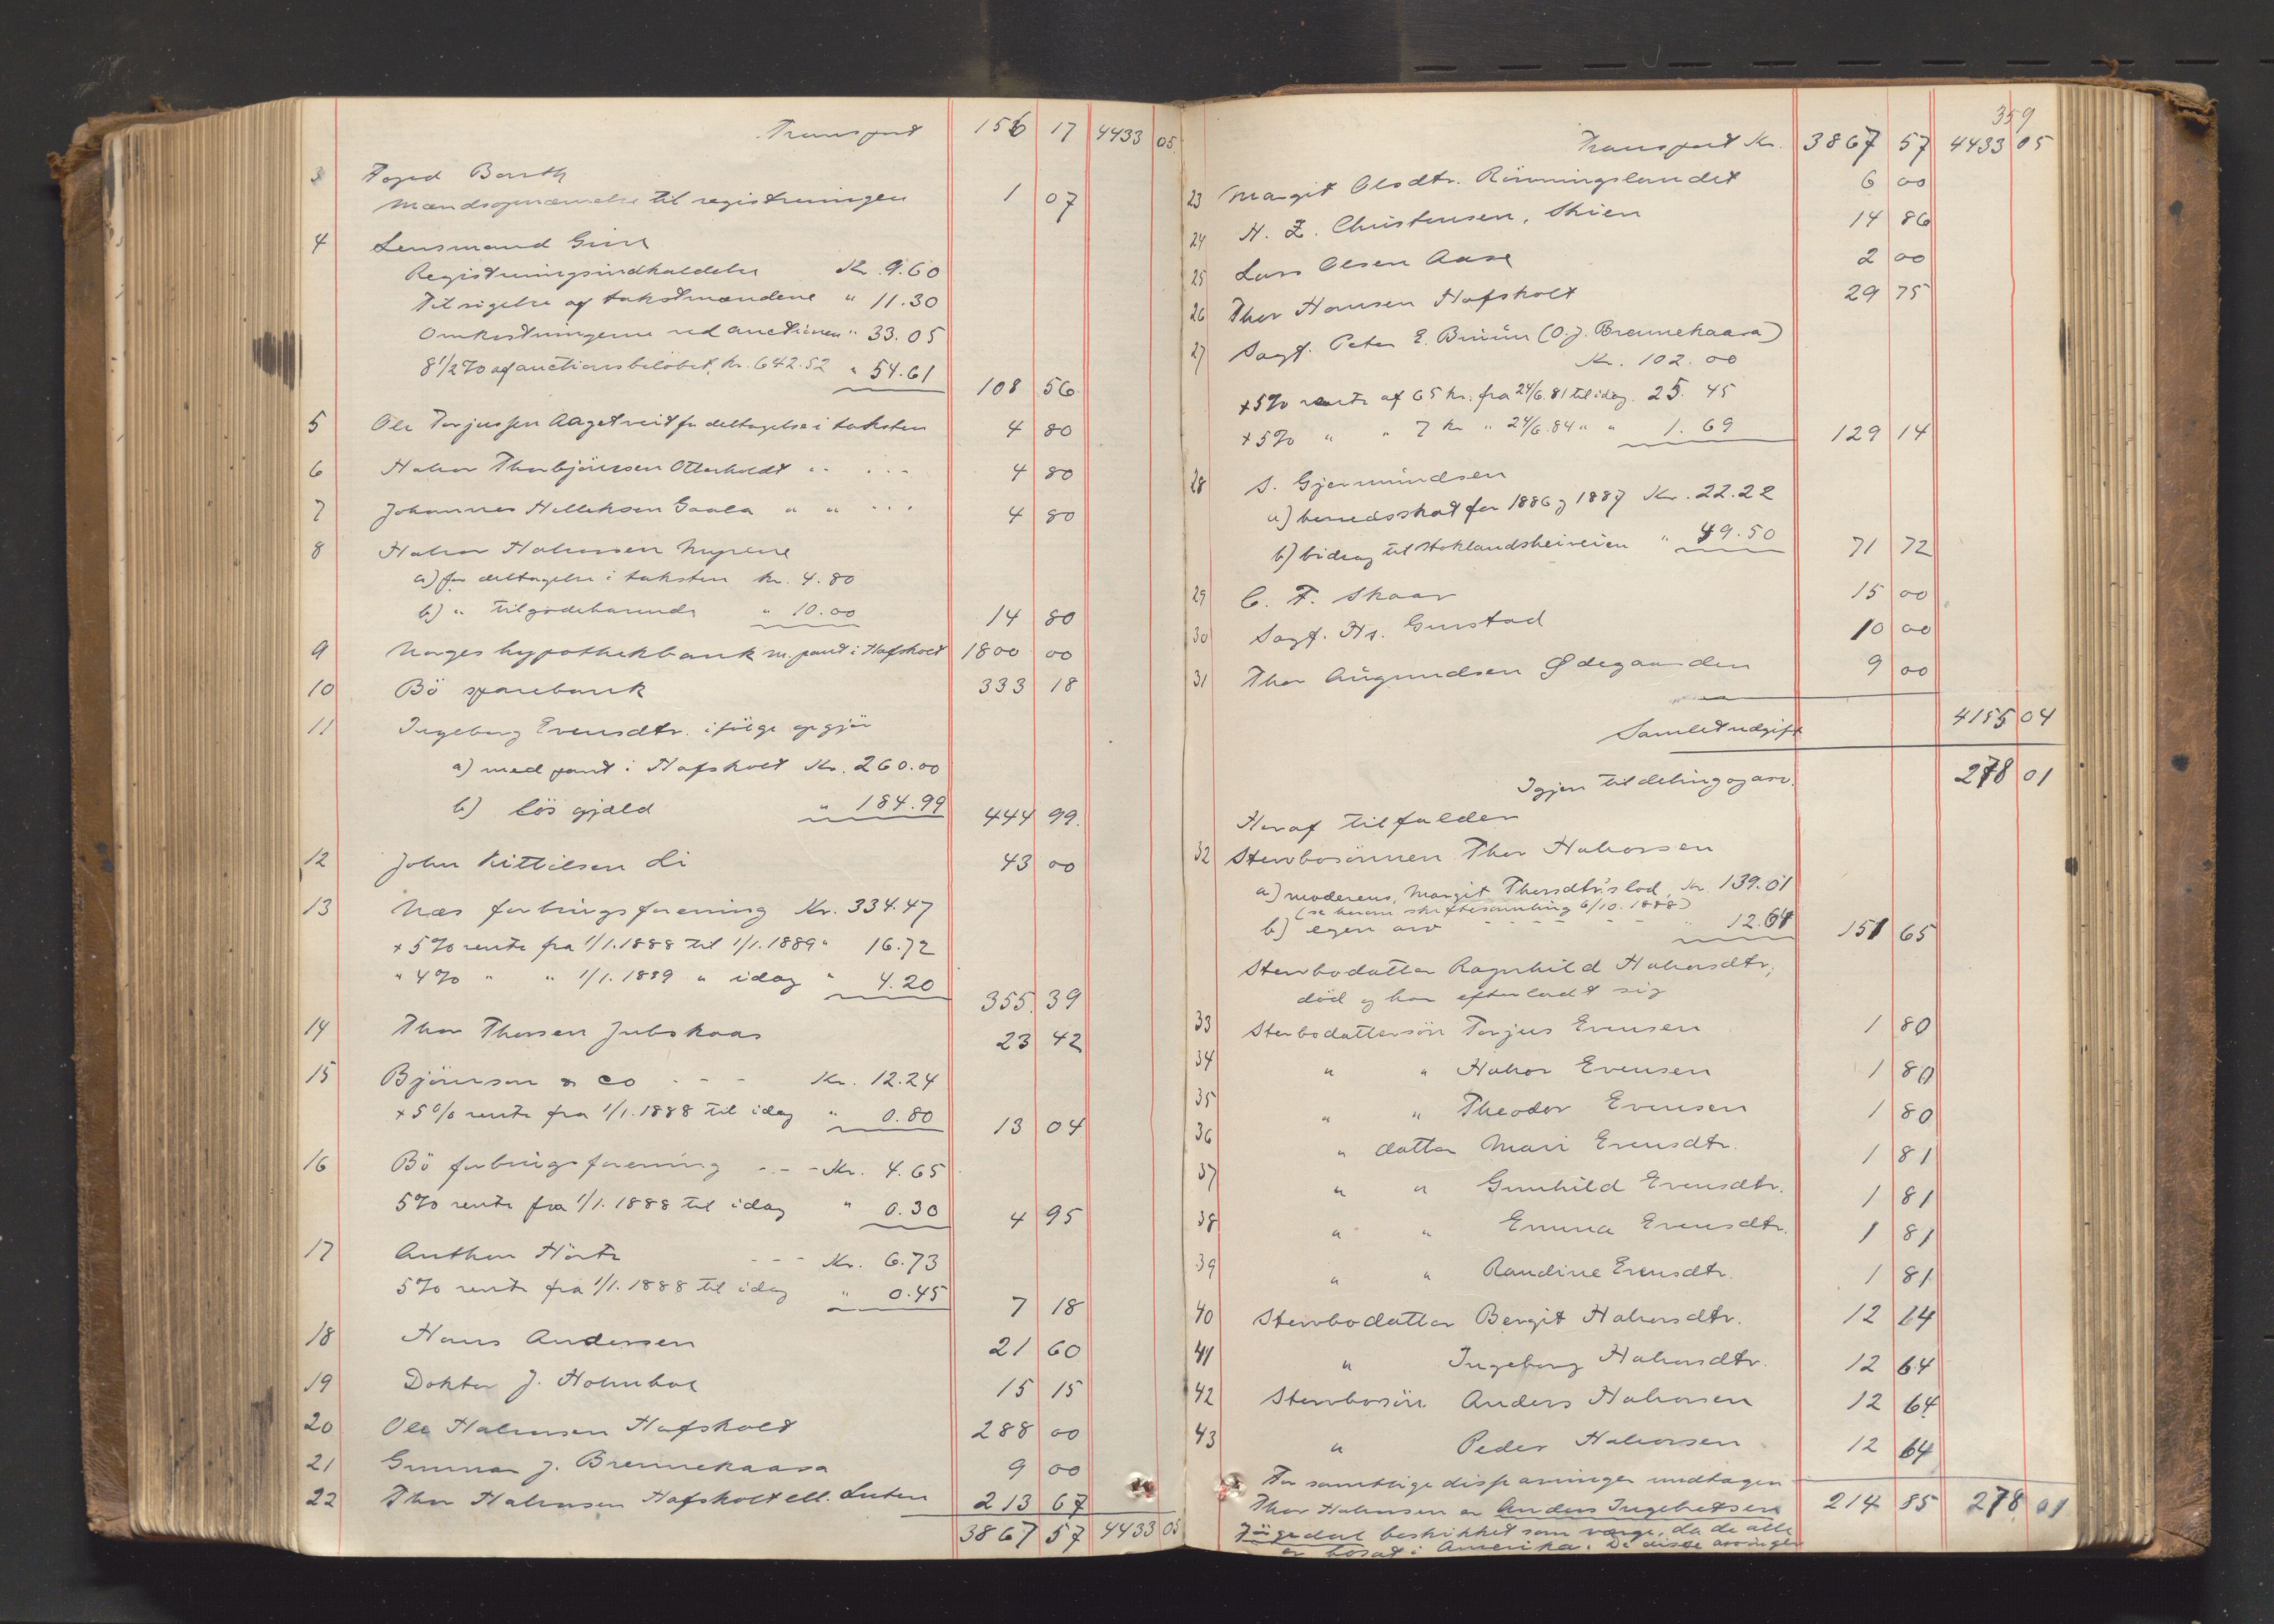 Transport 156 17 4433 05
3 Foged Barth
Mændsopnævnelse til registreringen 1 07
4 Lensmand Gire
Registreringsindkaldelse Kr. 9.60
Tilsigelse af takstmændene " 11.30
Omkostningerne ved auctionen " 33.05
8 1/2 % af auctionsbeløbet, kr. 642.52 " 54.61 108 56
5 Ole Torjussen Aagetveit for deltagelse i taksten 4 80
6 Halvor Thorbjörnsen Otterholdt " " . . . 4 80
7 Johannes Helleksen Gaala " " . . . 4 80
8 Halvor Halvorsen Nyrene
a) for deltagelse i taksten kr. 4.80
b) " tilgodehavende " 10.00 14 80
9 Norges hypothekbank m. pant i Hafsholt 1800 00
10 Bö sparebank 333 18
11 Ingeborg Evensdtr. ifölge opgjör
a) med pant i Hafsholt Kr. 260.00
b) lös gjæld " 184.99 444 99.
12 John Kittilsen Li 43 00
13 Næs forbrugsforening Kr. 334.47
+ 5% rente fra 1/1.1888 til 1/1.1889 " 16.72
" 4% " " 1/1.1889 " idag " 4.20 355.39
14 Thor Thorsen Jubskaas 23 42
15 Björnson & co - - - Kr. 12.24
+ 5% rente fra 1/1.1888 til idag " 0.80 13 04
16 Bö forbrugsforening - - - Kr. 4.65
5% rente fra 1/1.1888 til idag " 0.30 4 95
17 Anthon Hörte - - - Kr. 6.73
5% rente fra 1/1.1888 til idag " 0.45 7 18
18 Hans Andersen 21 60
19 Doktor J. Holmboe 15 15
20 Ole Halvorsen Hafsholt 288 00
21 Gunnar J. Brennekaasa 9 00
22 Thor Halvorsen Hafsholt ell. Luten 213 67
3867 57 4433 05
359
Transport Kr. 3867 57 4433 05
23 Margit Olsdtr. Rönningslandet 6 00
24 H. Z. Christensen, Skien 14 86
25 Lars Olsen Aase 2 00
26 Thor Hansen Hafsholt 29 75
27 Sagf. Peter E. Bruun (O. J. Brennekaasa)
Kr. 102.00
+ 5% rente af 65 kr. fra 24/6.81 til idag. 25.45
+ 5% " " 7 kr " 24/6.84 " " 1.69 129 14
28 S. Gjermundsen
a) herredsskat for 1886 og 1887 Kr. 22.22
b) bidrag til Stoklandsheiveien " 49.50 71 72
29 C. F. Skaar 15 00
30 Sagf. Hs. Gurstad 10 00
31 Thor Aügundsen Ødegaarden 9 00
Samlet udgift 4155 04
Igjen til deling og arv. 278 01
Heraf tilfalder
32 Stervbosönnen Thor Halvorsen
a) moderens, Margit Thorsdtr's lod, Kr. 139.01
(se herom skiftesamling 6/10.1888)
b) egen arv - - - - - - " 12.64 151 65
Stervbodatter Ragnhild Halvorsdtr,
död og har efterladt sig
33 Stervbodattersön Torjus Evensen 1 80
34 " " Halvor Evensen 1 80
35 " " Theodor Evensen 1 80
36 " datter Mari Evensdtr. 1 81
37 " " Gunhild Evensdtr. 1 81
38 " " Emma Evensdtr. 1 81
39 " " Randine Evensdtr. 1 81
40 Stervbodatter Bergit Halvorsdtr. 12 64
41 " Ingeborg Halvorsdtr. 12 64
42 Stervbosön Anders Halvorsen 12 64
43 " Peder Halvorsen 12 64
For samtlige disse arvinger undtagen
Thor Halvorsen er Anders Ingebretsen 214 85 278 01
beskikket som værge, da de alle
er bosat i Amerika. De disse arvinger